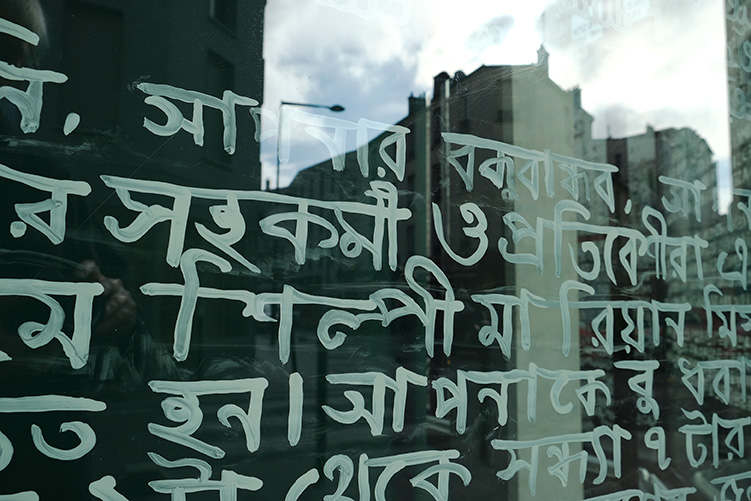 ন, আপনার বন্ধুবান্ধব, আ
র সহকর্মী ও প্রতিবেশীরা এ
ম শিল্পী মারিয়ান মি
ত হন। আপনাকে বুধবা
থেকে সন্ধ্যা ৭টার